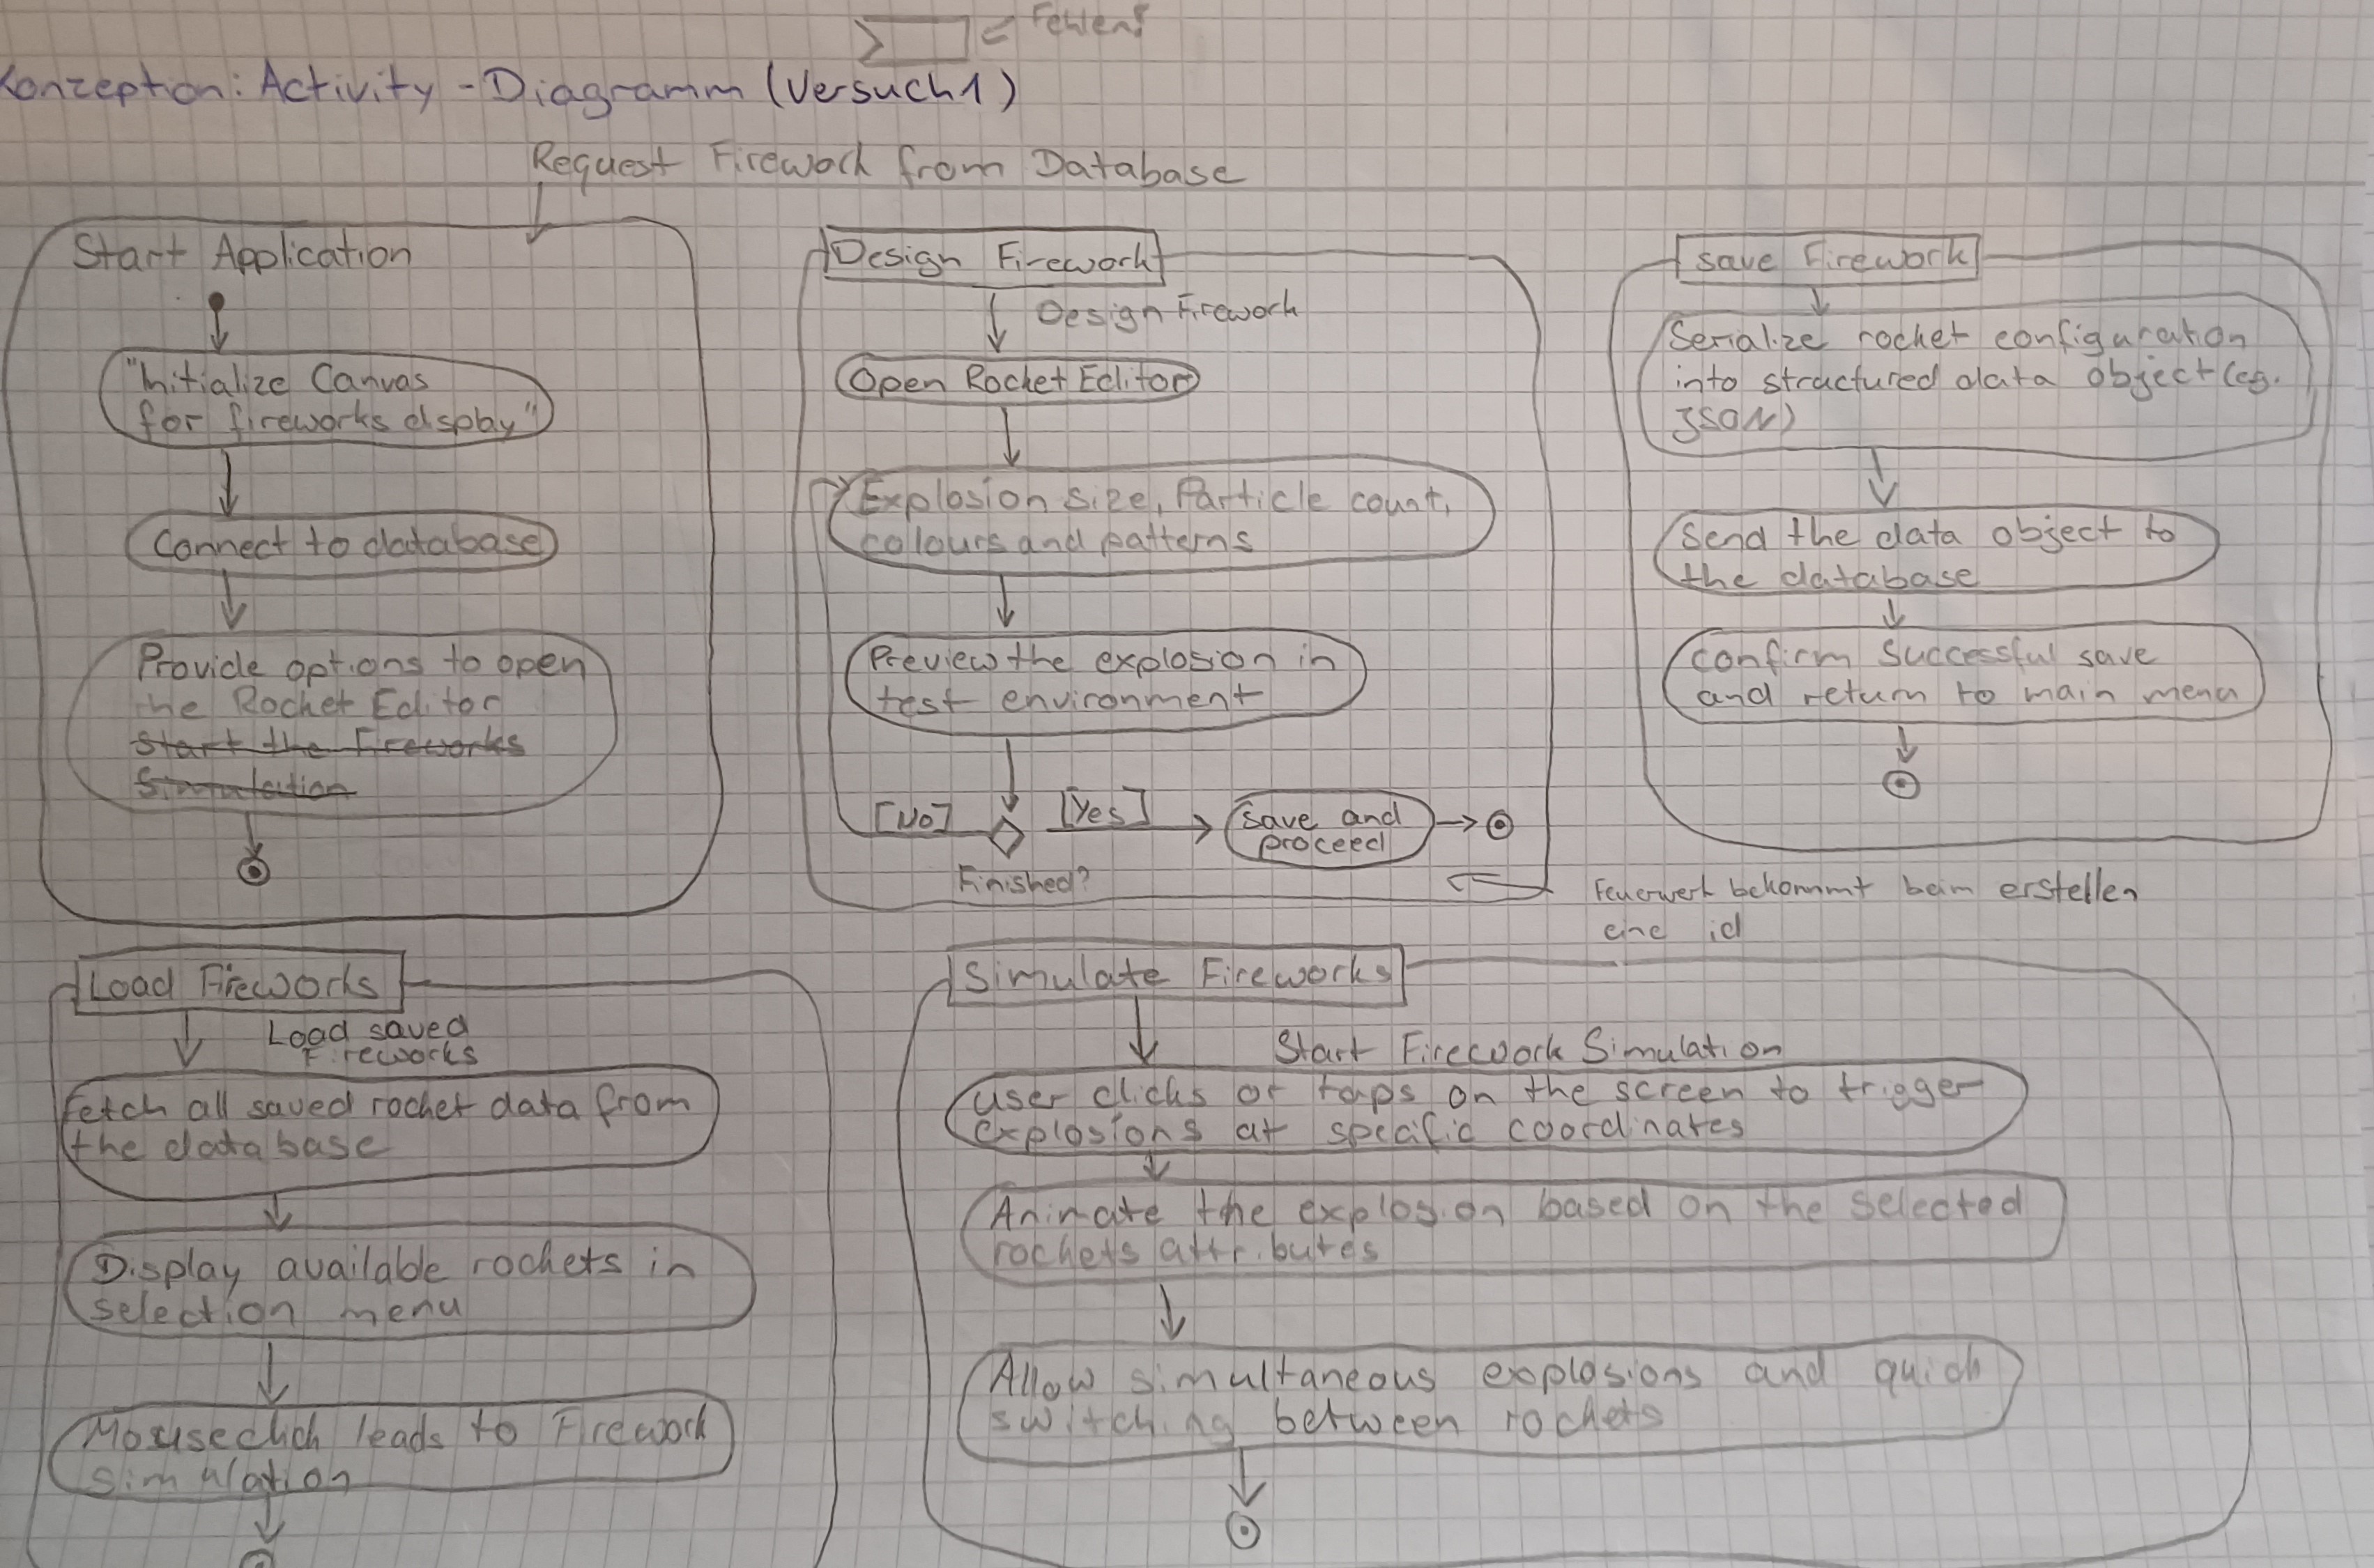 = Fehlen?
Konzeption: Activity - Diagramm (Versuch 1)
Request Firework from Database
Start Application
"Initialize Canvas
for fireworks display"
Connect to database
Provide options to open
the Rocket Editor
Start the Fireworks
Simulation
Design Firework
Design Firework
Open Rocket Editor
Explosion size, Particle count,
colours and patterns
Preview the explosion in
test environment
[No]
[Yes]
Save and
proceed
Finished?
save Firework
Serialize rocket configuration
into structured data object (eg.
JSON)
Send the data object to
the database
confirm successful save
and return to main menu
Feuerwerk bekommt beim erstellen
eine id
Load Fireworks
Load saved
Fireworks
Fetch all saved rocket data from
the database
Display available rockets in
selection menu
Mouseclick leads to Firework
simulation
Simulate Fireworks
Start Firework Simulation
user clicks or taps on the screen to trigger
explosions at specific coordinates
Animate the explosion based on the selected
rockets attributes
Allow simultaneous explosions and quick
switching between rockets